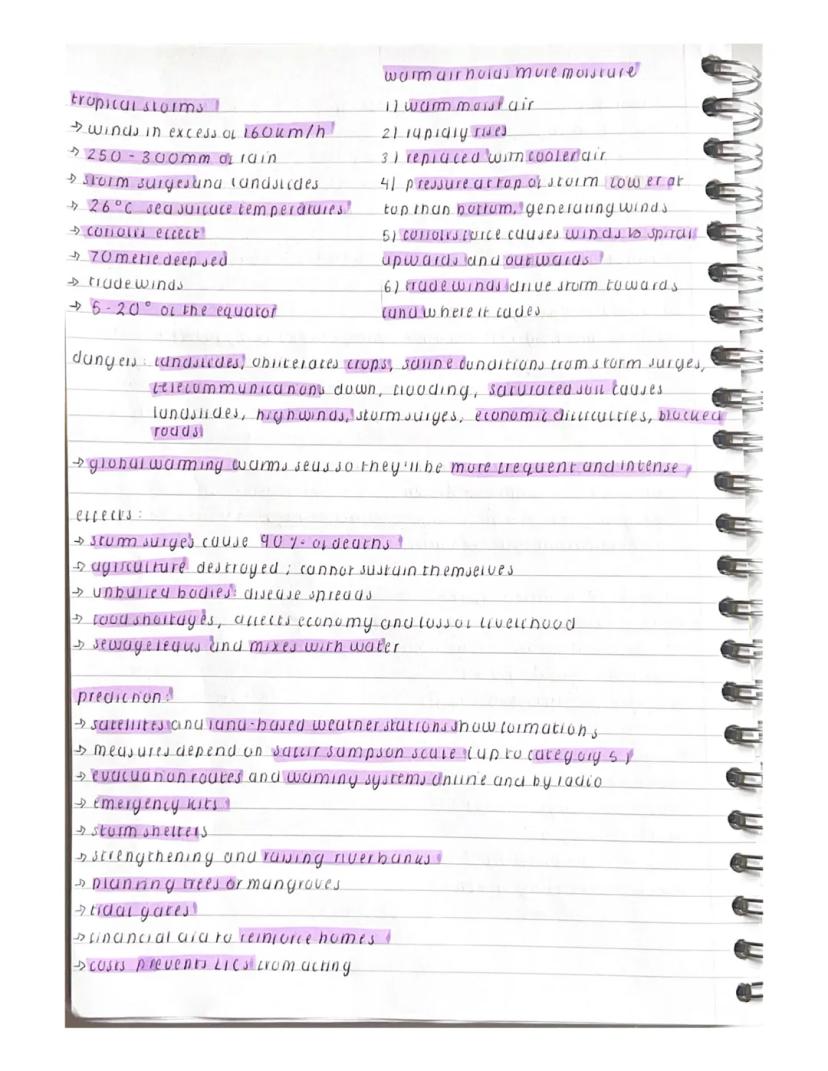 tropical storms
→ winds in excess of 160km/h
→ 250 - 300mm of rain
→ storm surges and landslides
→ 26°C sea surface temperatures
→ coriolis effect
→ 70 metre deep sea
→ trade winds
→ 5 - 20° of the equator
warm air holds more moisture
1) warm moist air
2) rapidly rises
3) replaced with cooler air
4) pressure at top of storm lower at
top than bottom, generating winds
5) coriolis force causes winds to spiral
upwards and outwards
6) trade winds drive storm towards
land where it fades
dangers: landslides, obliterates crops, saline conditions from storm surges,
telecommunications down, flooding, saturated soil causes
landslides, high winds, storm surges, economic difficulties, blocked
roads
→ global warming warms seas so they'll be more frequent and intense
effects:
→ storm surges cause 90% of deaths
→ agriculture destroyed; cannot sustain themselves
→ unburied bodies: disease spreads
→ food shortages, affects economy and loss of livelihood
→ sewage leaks and mixes with water
prediction:
→ satellites and land-based weather stations show formations
→ measures depend on saffir sampson scale (up to category 5)
→ evacuation routes and warning systems online and by radio
→ emergency kits
→ storm shelters
→ strengthening and raising river banks
→ planning trees or mangroves
→ tidal gates
→ financial aid to reinforce homes
→ costs prevents LICs from acting